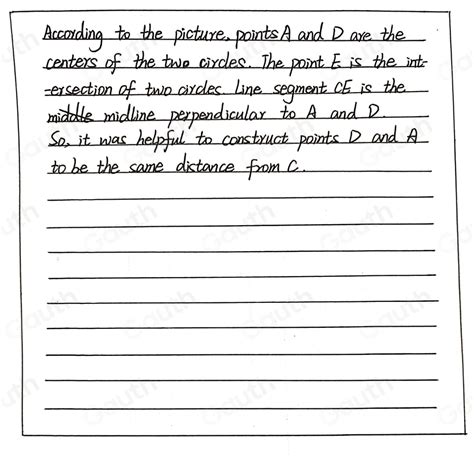 According to the picture, points A and D are the
centers of the two circles. The point E is the int-
-ersection of two circles. Line segment CE is the
middle midline perpendicular to A and D.
So, it was helpful to construct points D and A
to be the same distance from C.